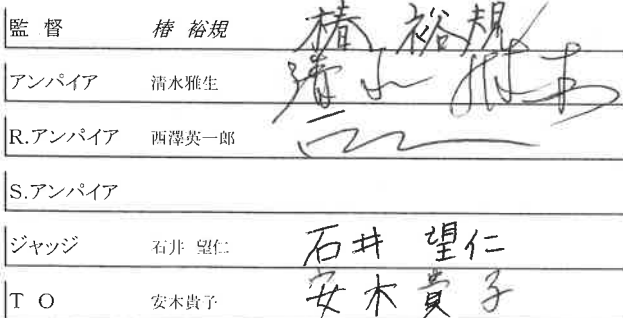 監 督 椿 裕規 椿 裕規
アンパイア 清水雅生 清水 雅生
R.アンパイア 西澤英一郎
S.アンパイア
ジャッジ 石井 望仁 石井 望仁
T O 安木貴子 安木貴子